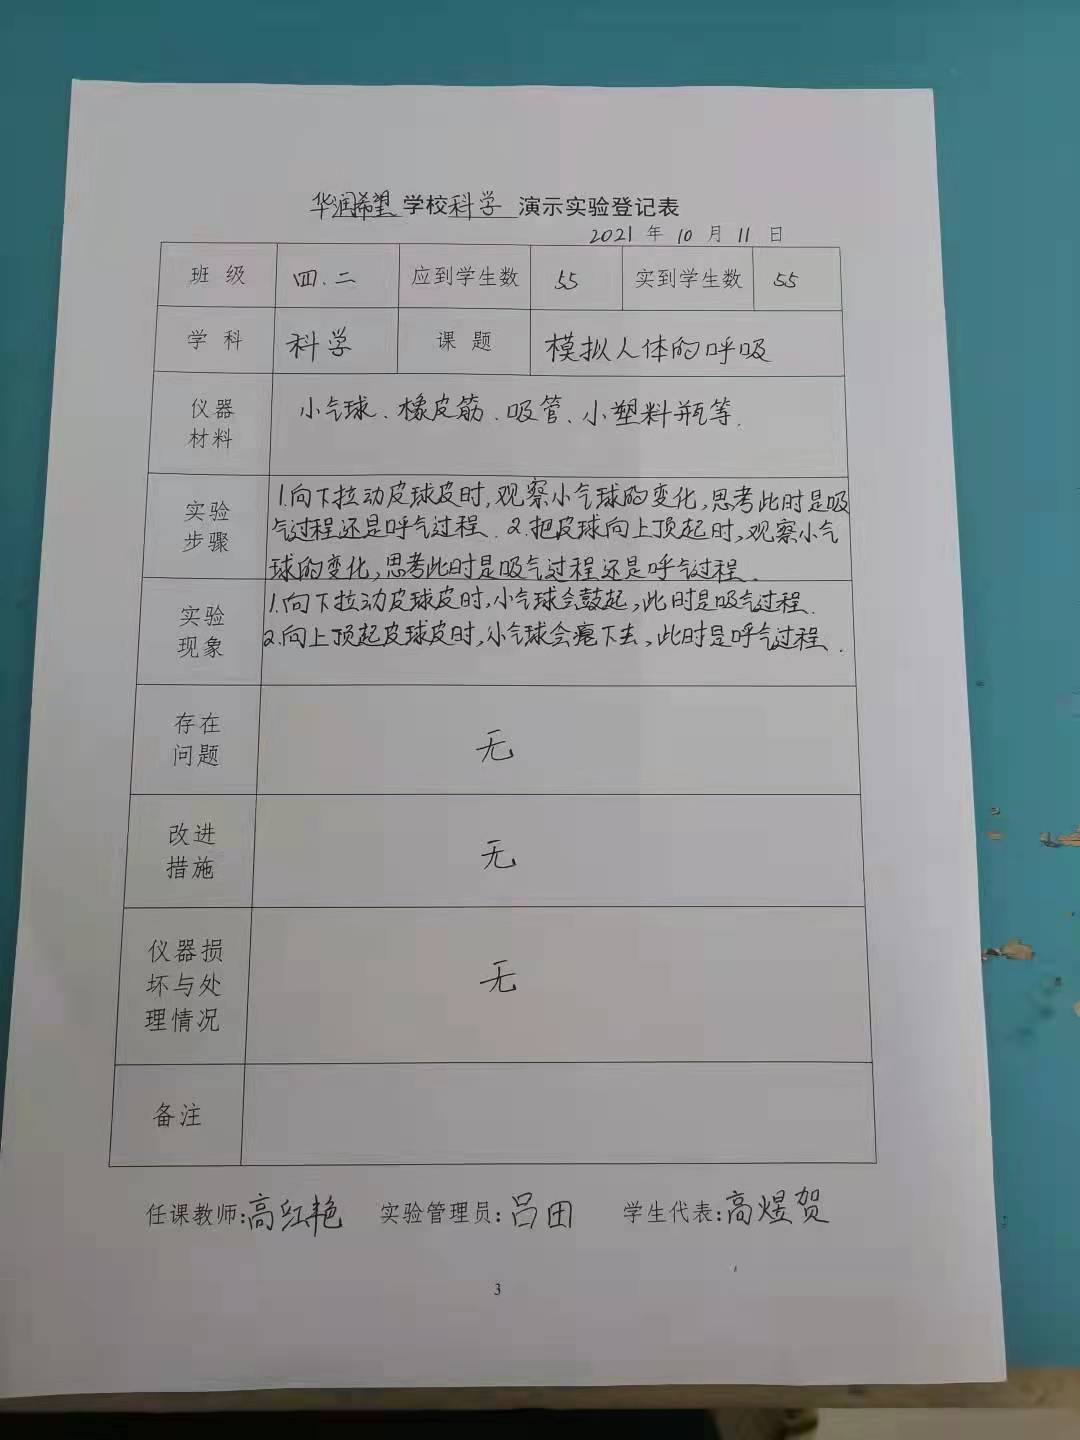 华润希望学校科学 演示实验登记表
2021 年 10 月 11 日
班 级 四.二 应到学生数 55 实到学生数 55
学 科 科学 课 题 模拟人体的呼吸
仪器
材料
小气球、橡皮筋、吸管、小塑料瓶等.
实验
步骤
1.向下拉动皮球皮时,观察小气球的变化,思考此时是吸
气过程还是呼气过程. 2.把皮球向上顶起时,观察小气
球的变化,思考此时是吸气过程还是呼气过程.
实验
现象
1.向下拉动皮球皮时,小气球会鼓起,此时是吸气过程.
2.向上顶起皮球皮时,小气球会瘪下去,此时是呼气过程.
存在
问题
无
改进
措施
无
仪器损
坏与处
理情况
无
备注
任课教师:高红艳 实验管理员:吕田 学生代表:高煜贺
3